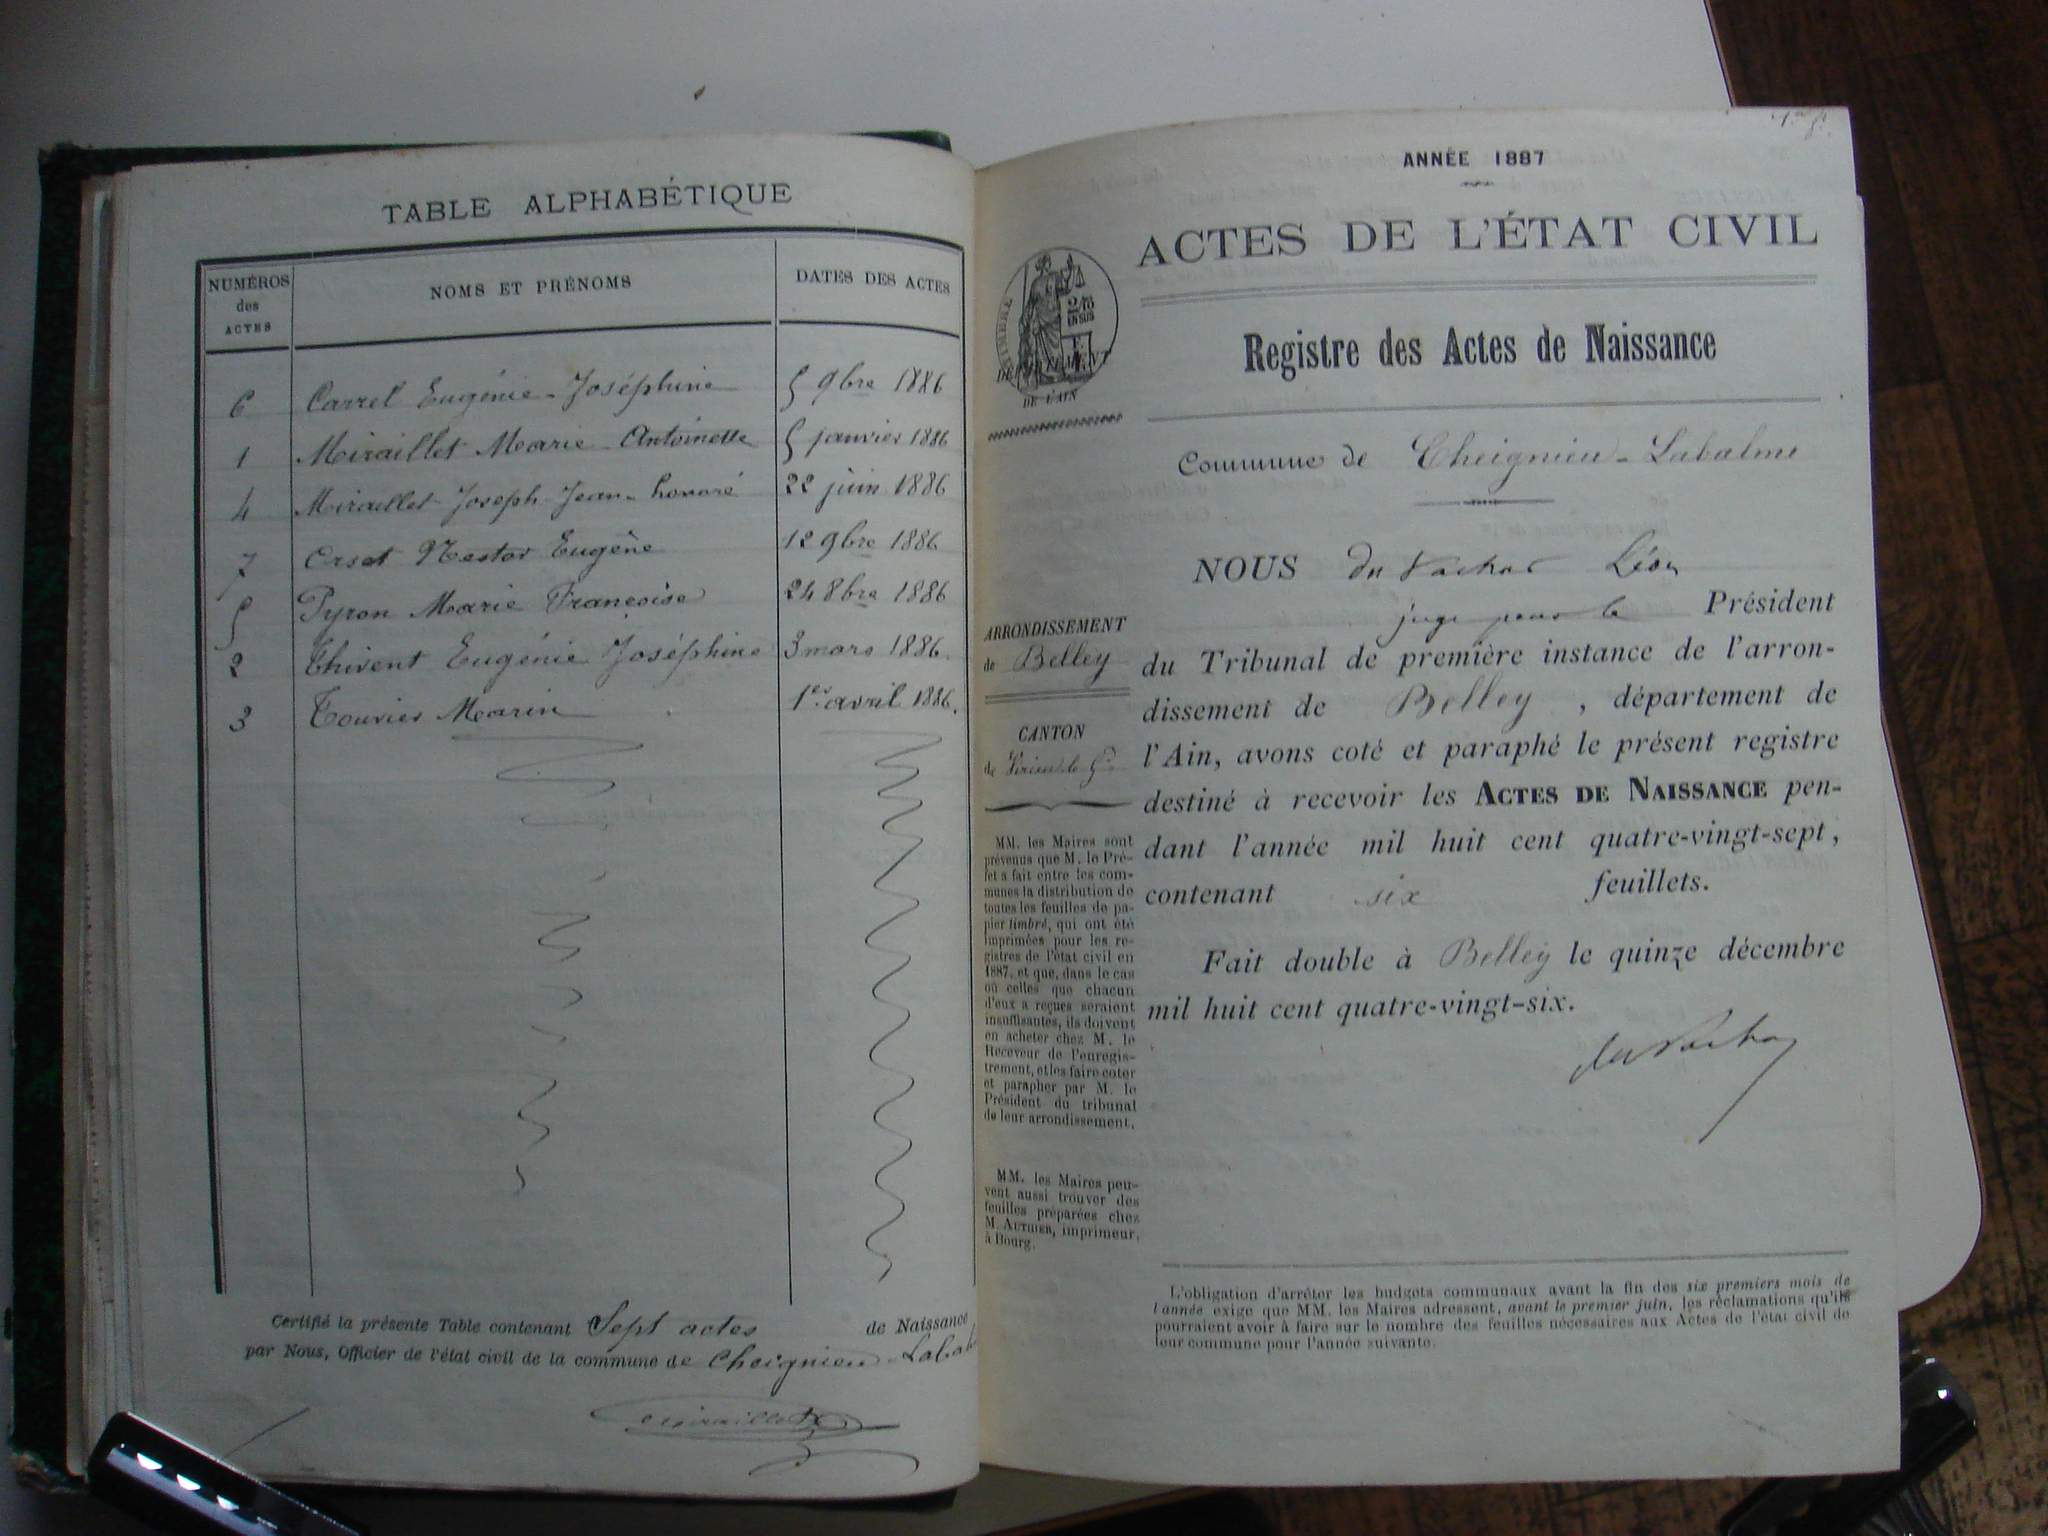 TABLE ALPHABÉTIQUE
NUMÉROS des ACTES
NOMS ET PRÉNOMS
DATES DES ACTES
6 Carrel Eugénie-Joséphine 5 9bre 1886
1 Miraillet Marie-Antoinette 5 janvier 1886
4 Miraillet Joseph-Jean-honoré 22 juin 1886
7 Orset Nestor Eugène 12 9bre 1886
5 Pyron Marie Françoise 24 8bre 1886
2 Thivent Eugénie Joséphine 3 mars 1886.
3 Touvier Marin 1er avril 1886.
Certifié la présente Table contenant Sept actes de Naissance
par Nous, Officier de l'état civil de la commune de Cheignieu-Labal
Miraillet
ANNÉE 1887
ACTES DE L'ÉTAT CIVIL
TIMBRE
2/10 EN SUS
DÉPARTEMENT
DE L'AIN
Registre des Actes de Naissance
Commune de Cheignieu-Labalme
ARRONDISSEMENT
de Belley
CANTON
de Virieu-le-Gd
MM. les Maires sont
prévenus que M. le Pré-
fet a fait entre les com-
munes la distribution de
toutes les feuilles de pa-
pier timbré, qui ont été
imprimées pour les re-
gistres de l'état civil en
1887, et que, dans le cas
où celles que chacun
d'eux a reçues seraient
insuffisantes, ils doivent
en acheter chez M. le
Receveur de l'enregis-
trement, et les faire coter
et parapher par M. le
Président du tribunal
de leur arrondissement.
MM. les Maires peu-
vent aussi trouver des
feuilles préparées chez
M. AUTHIER, imprimeur,
à Bourg.
NOUS du Vachat Léon
juge pour le Président
du Tribunal de première instance de l'arron-
dissement de Belley, département de
l'Ain, avons coté et paraphé le présent registre
destiné à recevoir les ACTES DE NAISSANCE pen-
dant l'année mil huit cent quatre-vingt-sept,
contenant six feuillets.
Fait double à Belley le quinze décembre
mil huit cent quatre-vingt-six.
du Vachat
L'obligation d'arrêter les budgets communaux avant la fin des six premiers mois de
l'année exige que MM. les Maires adressent, avant le premier juin, les réclamations qu'ils
pourraient avoir à faire sur le nombre des feuilles nécessaires aux Actes de l'état civil de
leur commune pour l'année suivante.